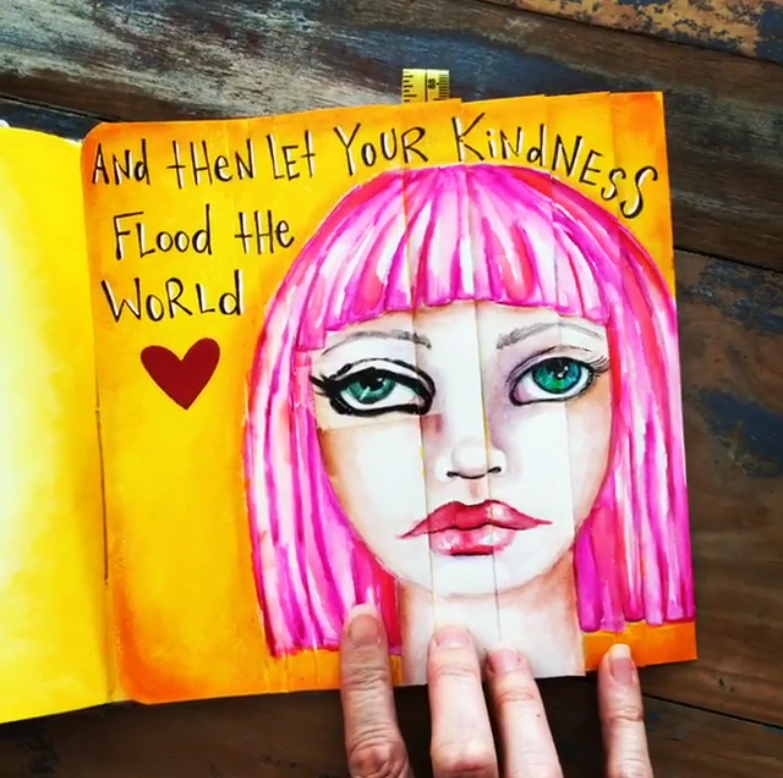 AND tHeN LEt YOUR KiNdNESS
FLood tHe
WoRLd